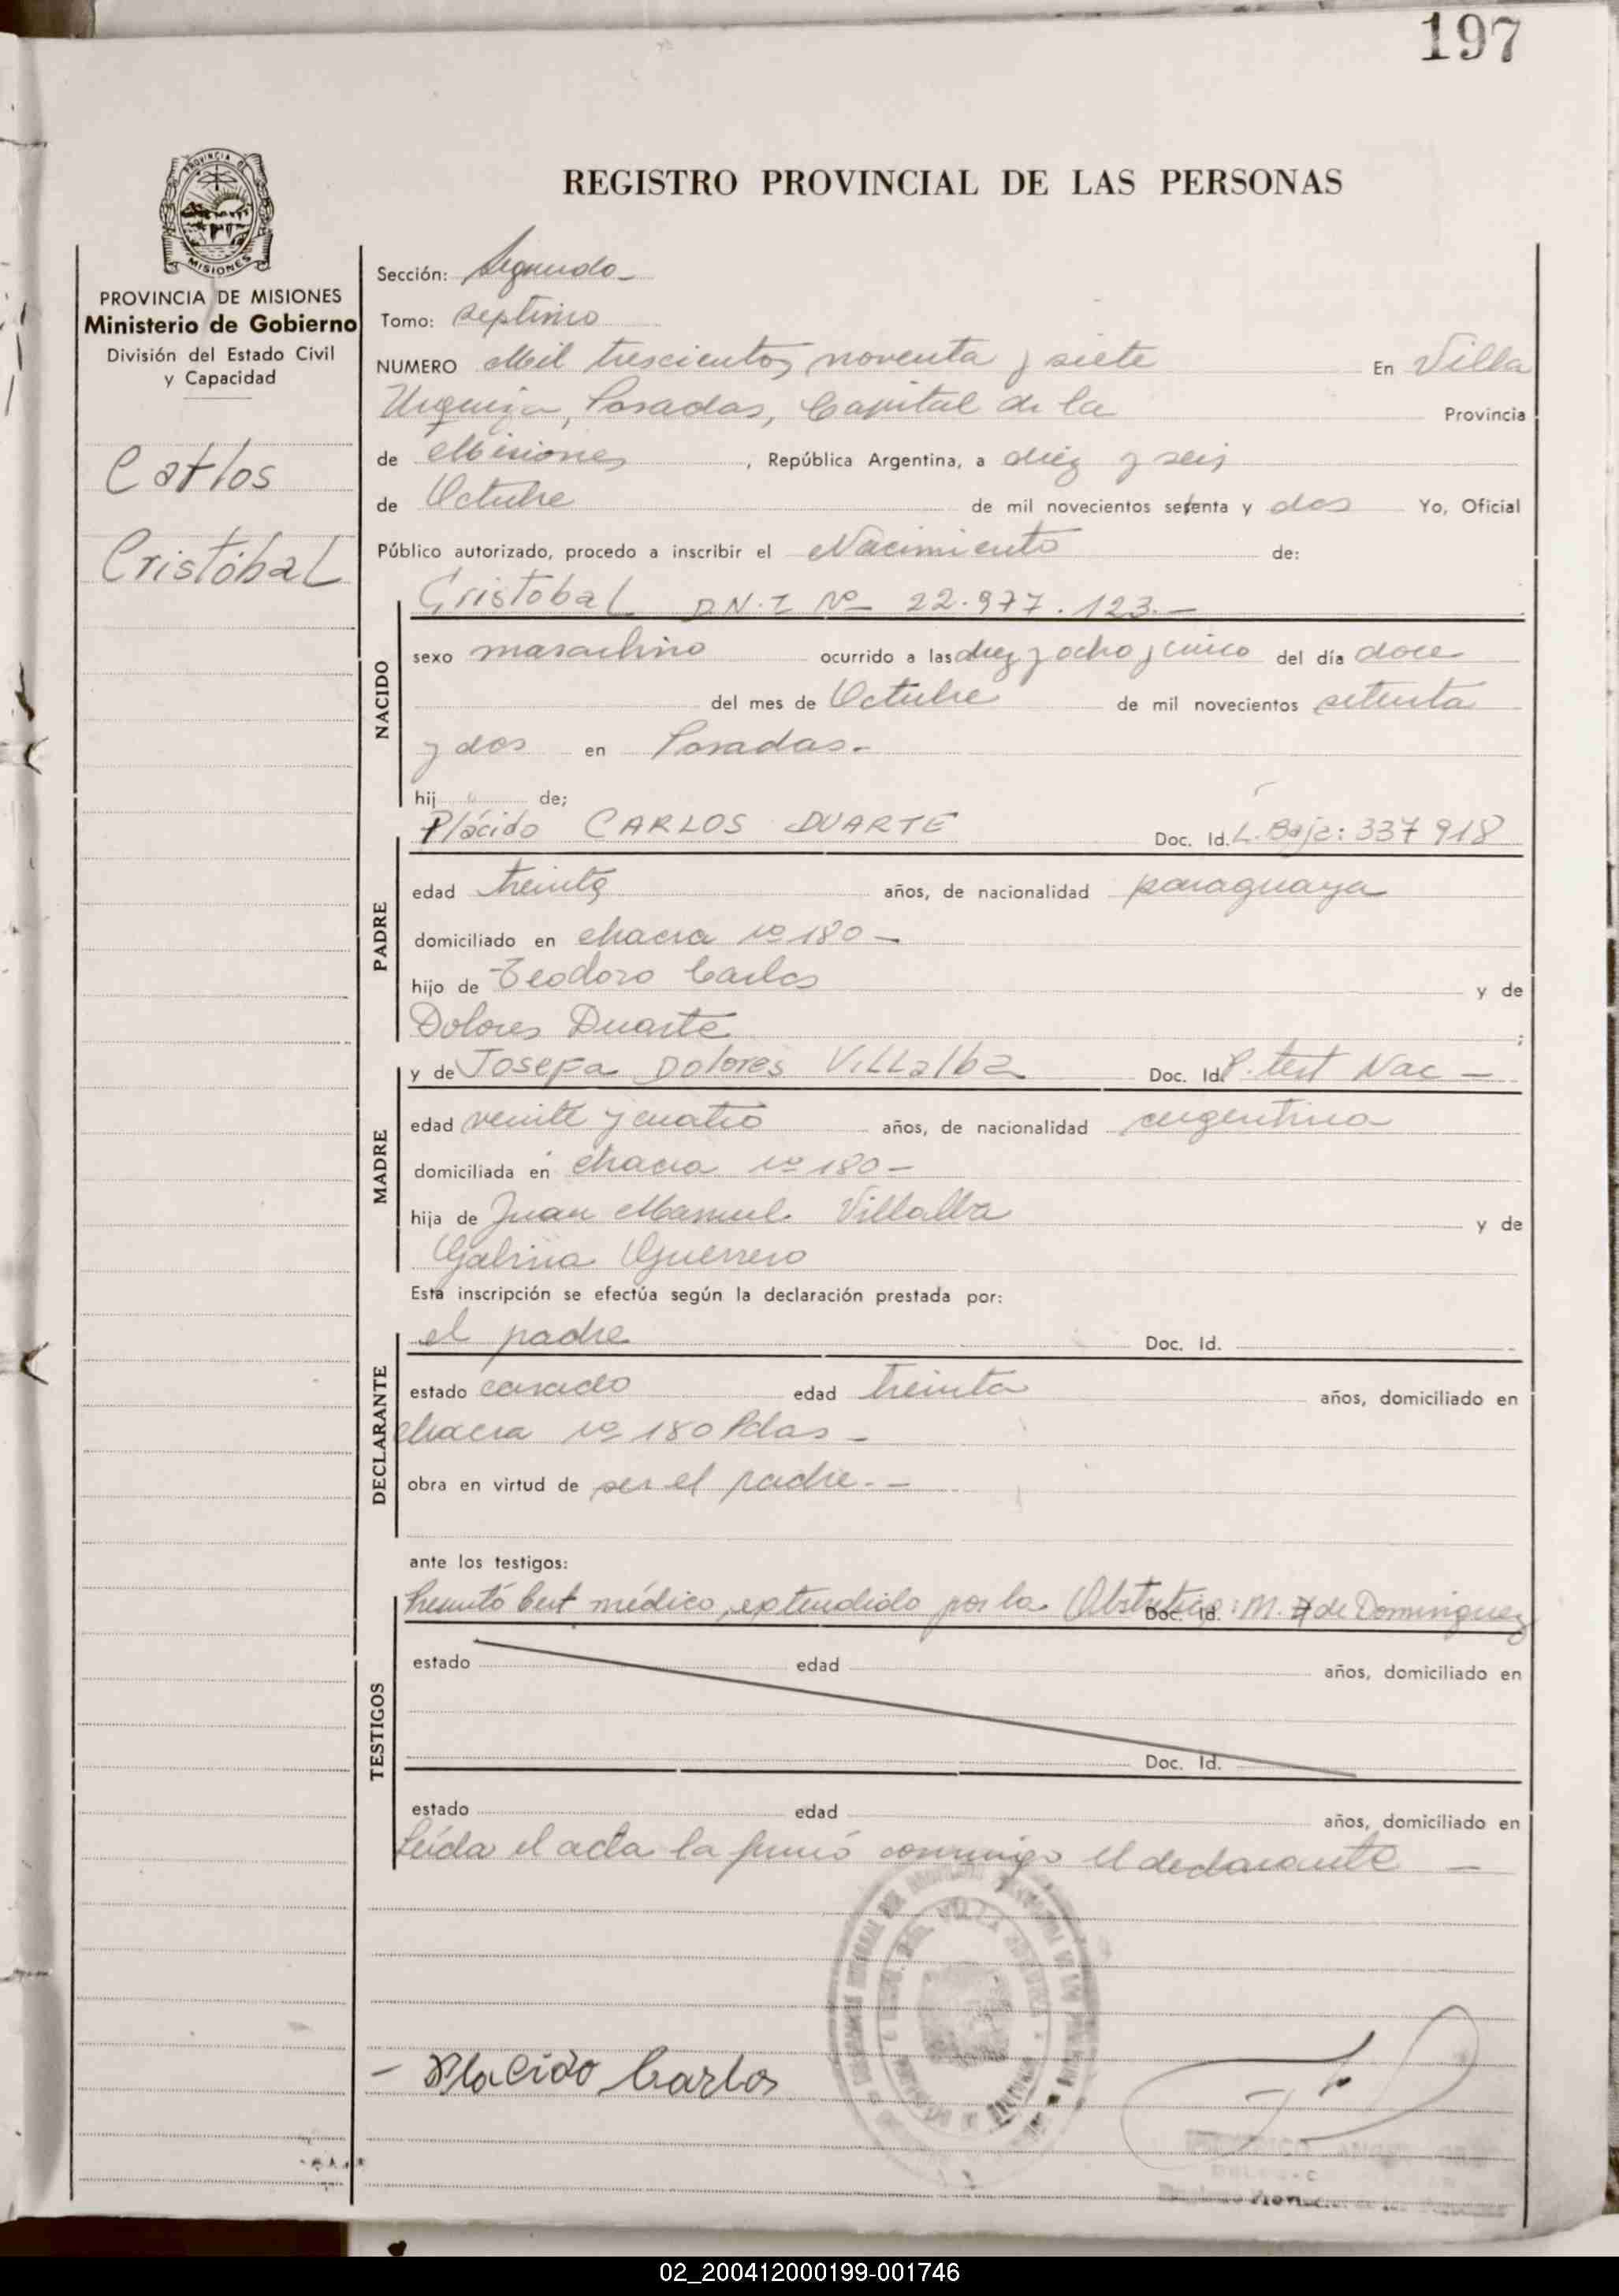 197
PROVINCIA DE MISIONES
REGISTRO PROVINCIAL DE LAS PERSONAS
PROVINCIA DE MISIONES
Ministerio de Gobierno
División del Estado Civil
y Capacidad
Carlos
Cristóbal
Sección: Segunda-
Tomo: septimo
NUMERO Mil trescientos noventa y siete En Villa
Urquiza, Posadas, Capital de la Provincia
de Misiones, República Argentina, a diez y seis
de Octubre de mil novecientos setenta y dos Yo, Oficial
Público autorizado, procedo a inscribir el Nacimiento de:
NACIDO
Cristobal D.N.I Nº 22.977.123.-
sexo masculino ocurrido a las diez y ocho y cinco del día doce
del mes de Octubre de mil novecientos setenta
y dos en Posadas.-
hijo de;
PADRE
Plácido CARLOS DUARTE Doc. Id. L. Baja: 337918
edad treinta años, de nacionalidad paraguaya
domiciliado en chacra nº 180 -
hijo de Teodoro Carlos y de
Dolores Duarte ;
MADRE
y de Josefa Dolores Villalba Doc. Id. P. test Nac -
edad veinte y cuatro años, de nacionalidad argentina
domiciliada en chacra nº 180 -
hija de Juan Manuel Villalba y de
Gabina Guerrero
Esta inscripción se efectúa según la declaración prestada por:
DECLARANTE
el padre Doc. Id.
estado casado edad treinta años, domiciliado en
chacra nº 180 Pdas -
obra en virtud de ser el padre.-
ante los testigos:
TESTIGOS
Presentó Cert médico, extendido por la Obstetrica: M. de Dominguez
Doc. Id.
estado edad años, domiciliado en
Doc. Id.
estado edad años, domiciliado en
Leída el acta la firmó conmigo el declarante -
- Placido Carlos
02_200412000199-001746